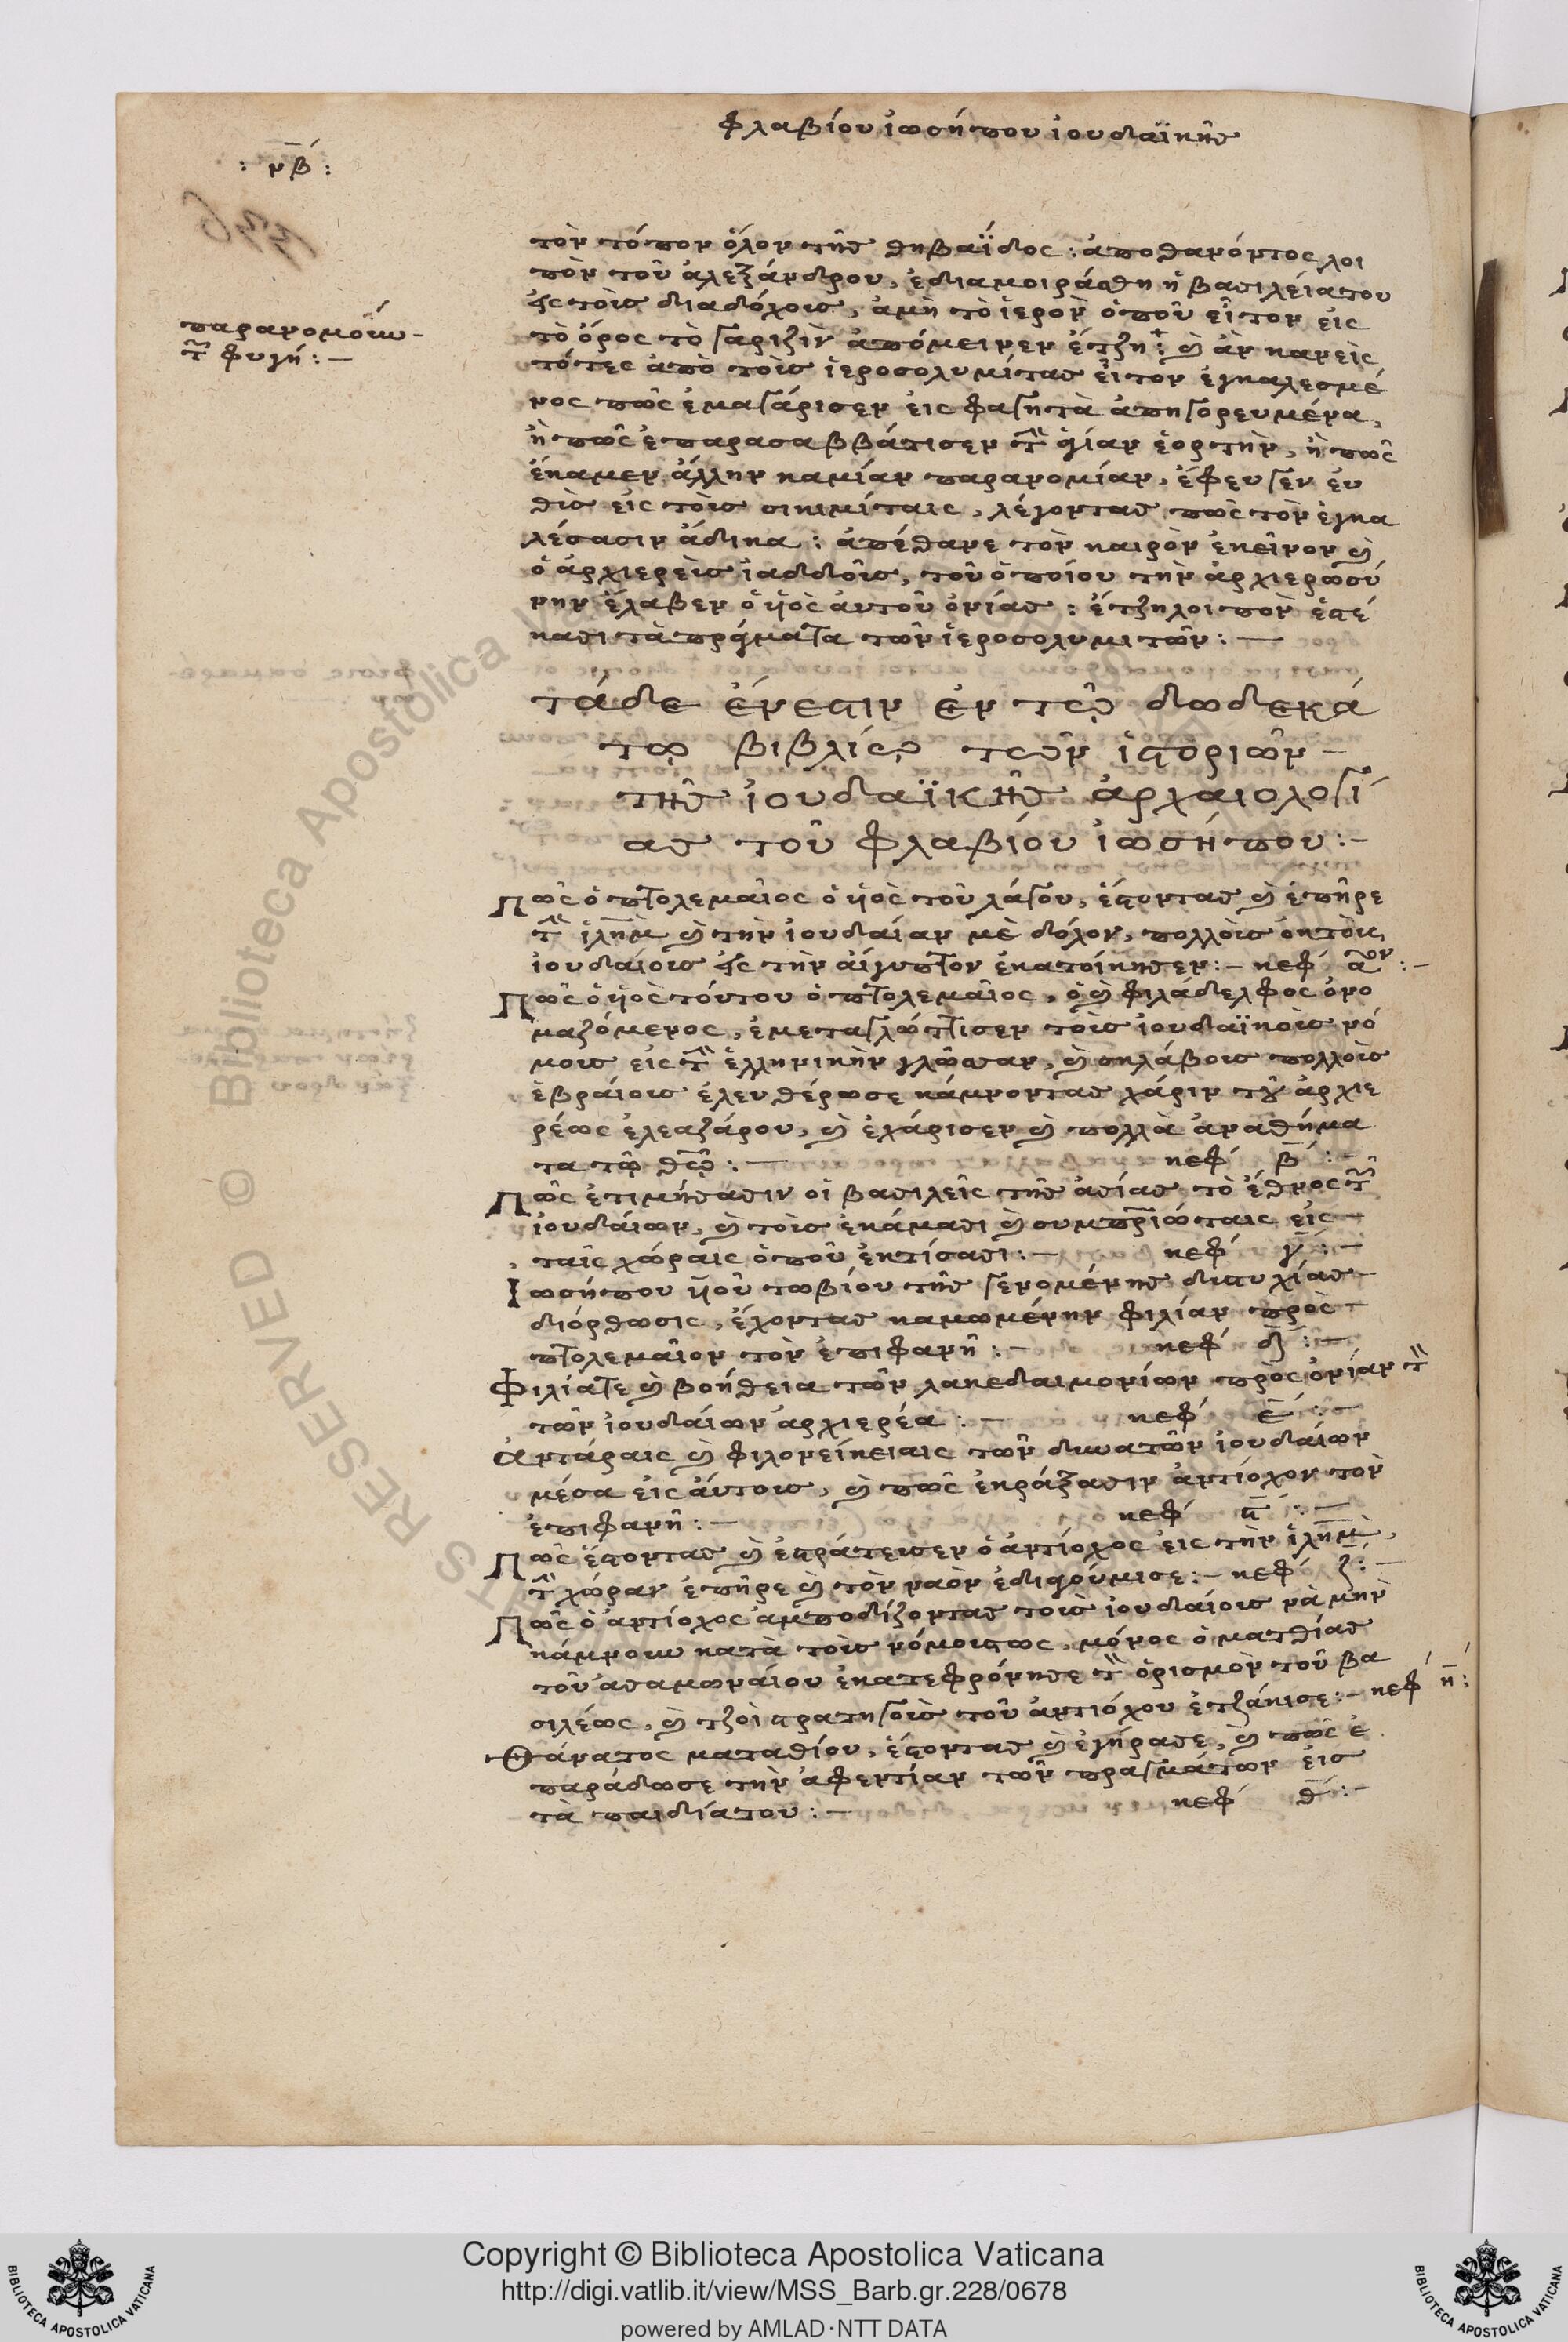 φλαβίου ἰωσήπου ἰουδαϊκῆς
: ρβ :
τὸν τόπον ὅλον τῆς θηβαΐδος : ἀποθανόντος λοι
πὸν τοῦ ἀλεξάνδρου, ἐδιαμοιράσθη ἡ βασιλείατου
εἰς τοὺς διαδόχους, ἀμὴ τὸ ἱερὸν ὁποῦ εἶτον εἰς
παρανομούν-
τῶν φυγή : –
τὸ ὄρος τὸ γαριζὶν ἀπόμεινεν ἔτζη : καὶ ἂν κανεὶς
τότες ἀπὸ τοὺς ἱεροσολυμίτας εἶτον ἐγκαλεσμέ
νος πῶς ἐμαγάρισεν εἰς φαγητὰ ἀπηγορευμένα,
ἢ πῶς ἐπαρασαββάτισεν τὴν ἁγίαν ἑορτὴν, ἢ πῶς
ἔκαμεν ἄλλην καμίαν παρανομίαν, ἔφευγεν εὐ
θὺς εἰς τοὺς σικιμίταις, λέγοντας πῶς τὸν ἐγκα
λέσασιν ἄδικα : ἀπέθανε τὸν καιρὸν ἐκεῖνον καὶ
ὁ ἀρχιερεὺς ἰαδδοῦς, τοῦ ὁποίου τὴν ἀρχιερωσύ
νην ἔλαβεν ὁ ὑιὸς αὐτοῦ ὀνίας : ἔτζηλοιπὸν ἐστέ
κασι τὰ πράγματα τῶν ἱεροσολυμιτῶν : –
τάδε ἔνεστιν ἐν τῷ δωδεκά
τῳ βιβλίῳ τῶν ἱστοριῶν –
τῆς ἰουδαϊκῆς ἀρχαιολογί
ας τοῦ φλαβίου ἰωσήπου : –
Πῶς ὁ πτολεμαῖος ὁ ὑιὸς τοῦ λάγου, ἔστοντας καὶ ἐπῆρε
τὴν ἱλῆμ καὶ τὴν ἰουδαίαν μὲ δόλον, πολλοὺς ἐκτοὺς
ἰουδαίους εἰς τὴν αἴγυπτον ἐκατοίκησεν : – κεφ αον : –
Πῶς ὁ ὑιὸς τούτου ὁ πτολεμαῖος, ὁ καὶ φιλάδελφος ὀνο
μαζόμενος, ἐμεταγλώττισεν τοὺς ἰουδαϊκοὺς νό
μους εἰς τὴν ἑλληνικὴν γλῶσσαν, καὶ σκλάβους πολλοὺς
ἑβραίους ἐλευθέρωσε κάμνοντας χάριν τοῦ ἀρχιε
ρέως ἐλεαζάρου, καὶ ἐχάρισεν καὶ πολλὰ ἀναθήμα
τα τῷ θεῷ : – κεφ β : –
Πῶς ἐτιμήσασιν οἱ βασιλεῖς τῆς ἀσίας τὸ ἔθνος τῶν
ἰουδαίων, καὶ τοὺς ἐκάμασι καὶ συμπατριώταις εἰς –
ταῖς χώραις ὁποῦ ἐκτίσασι : – κεφ γ : –
Ἰωσήπου ὑιοῦ τωβίου τῆς γενομένης δυστυχίας –
διόρθωσις, ἔχοντας καμωμένην φιλίαν πρὸς –
πτολεμαῖον τὸν ἐπιφανῆ : – κεφ δ : –
Φιλίατε καὶ βοήθεια τῶν λακεδαιμονίων πρὸς ὀνίαν τὸν
τῶν ἰουδαίων ἀρχιερέα : – κεφ ε : –
Ἀντάραις καὶ φιλονείκειαις τῶν δυνατῶν ἰουδαίων
μέσα εἰς αὐτους, καὶ πῶς ἐκράξασιν ἀντίοχον τὸν
ἐπιφανῆ : – κεφ ϛ : –
Πῶς ἔστοντας καὶ ἐστράτευσεν ὁ ἀντίοχος εἰς τὴν ἱλῆμ,
τὴν χώραν ἐπῆρε καὶ τὸν ναὸν ἐδιαγούμισε : – κεφ ζ : –
Πῶς ὁ ἀντίοχος ἀμποδίζοντας τοὺς ἰουδαίους νὰ μὴν
κάμνουν κατὰ τοὺς νόμουςτως, μόνος ὁ ματθίας
τοῦ ἀσαμωναίου ἐκατεφρόνησε τὸν ὁρισμὸν τοῦ βα
σιλέως, καὶ τζοὶ στρατηγοὺς τοῦ ἀντιόχου ἐτζάκισε : – κεφ η :
Θάνατος ματαθίου, ἔστοντας καὶ ἐγήρασε, καὶ πῶς ἐ
παράδωσε τὴν ἀφεντίαν τῶν πραγμάτων εἰς
τὰ παιδίατου : – κεφ θ : –
Copyright © Biblioteca Apostolica Vaticana
http://digi.vatlib.it/view/MSS_Barb.gr.228/0678
powered by AMLAD·NTT DATA
BIBLIOTECA APOSTOLICA VATICANA
BIBLIOTECA APOSTOLICA VATICANA